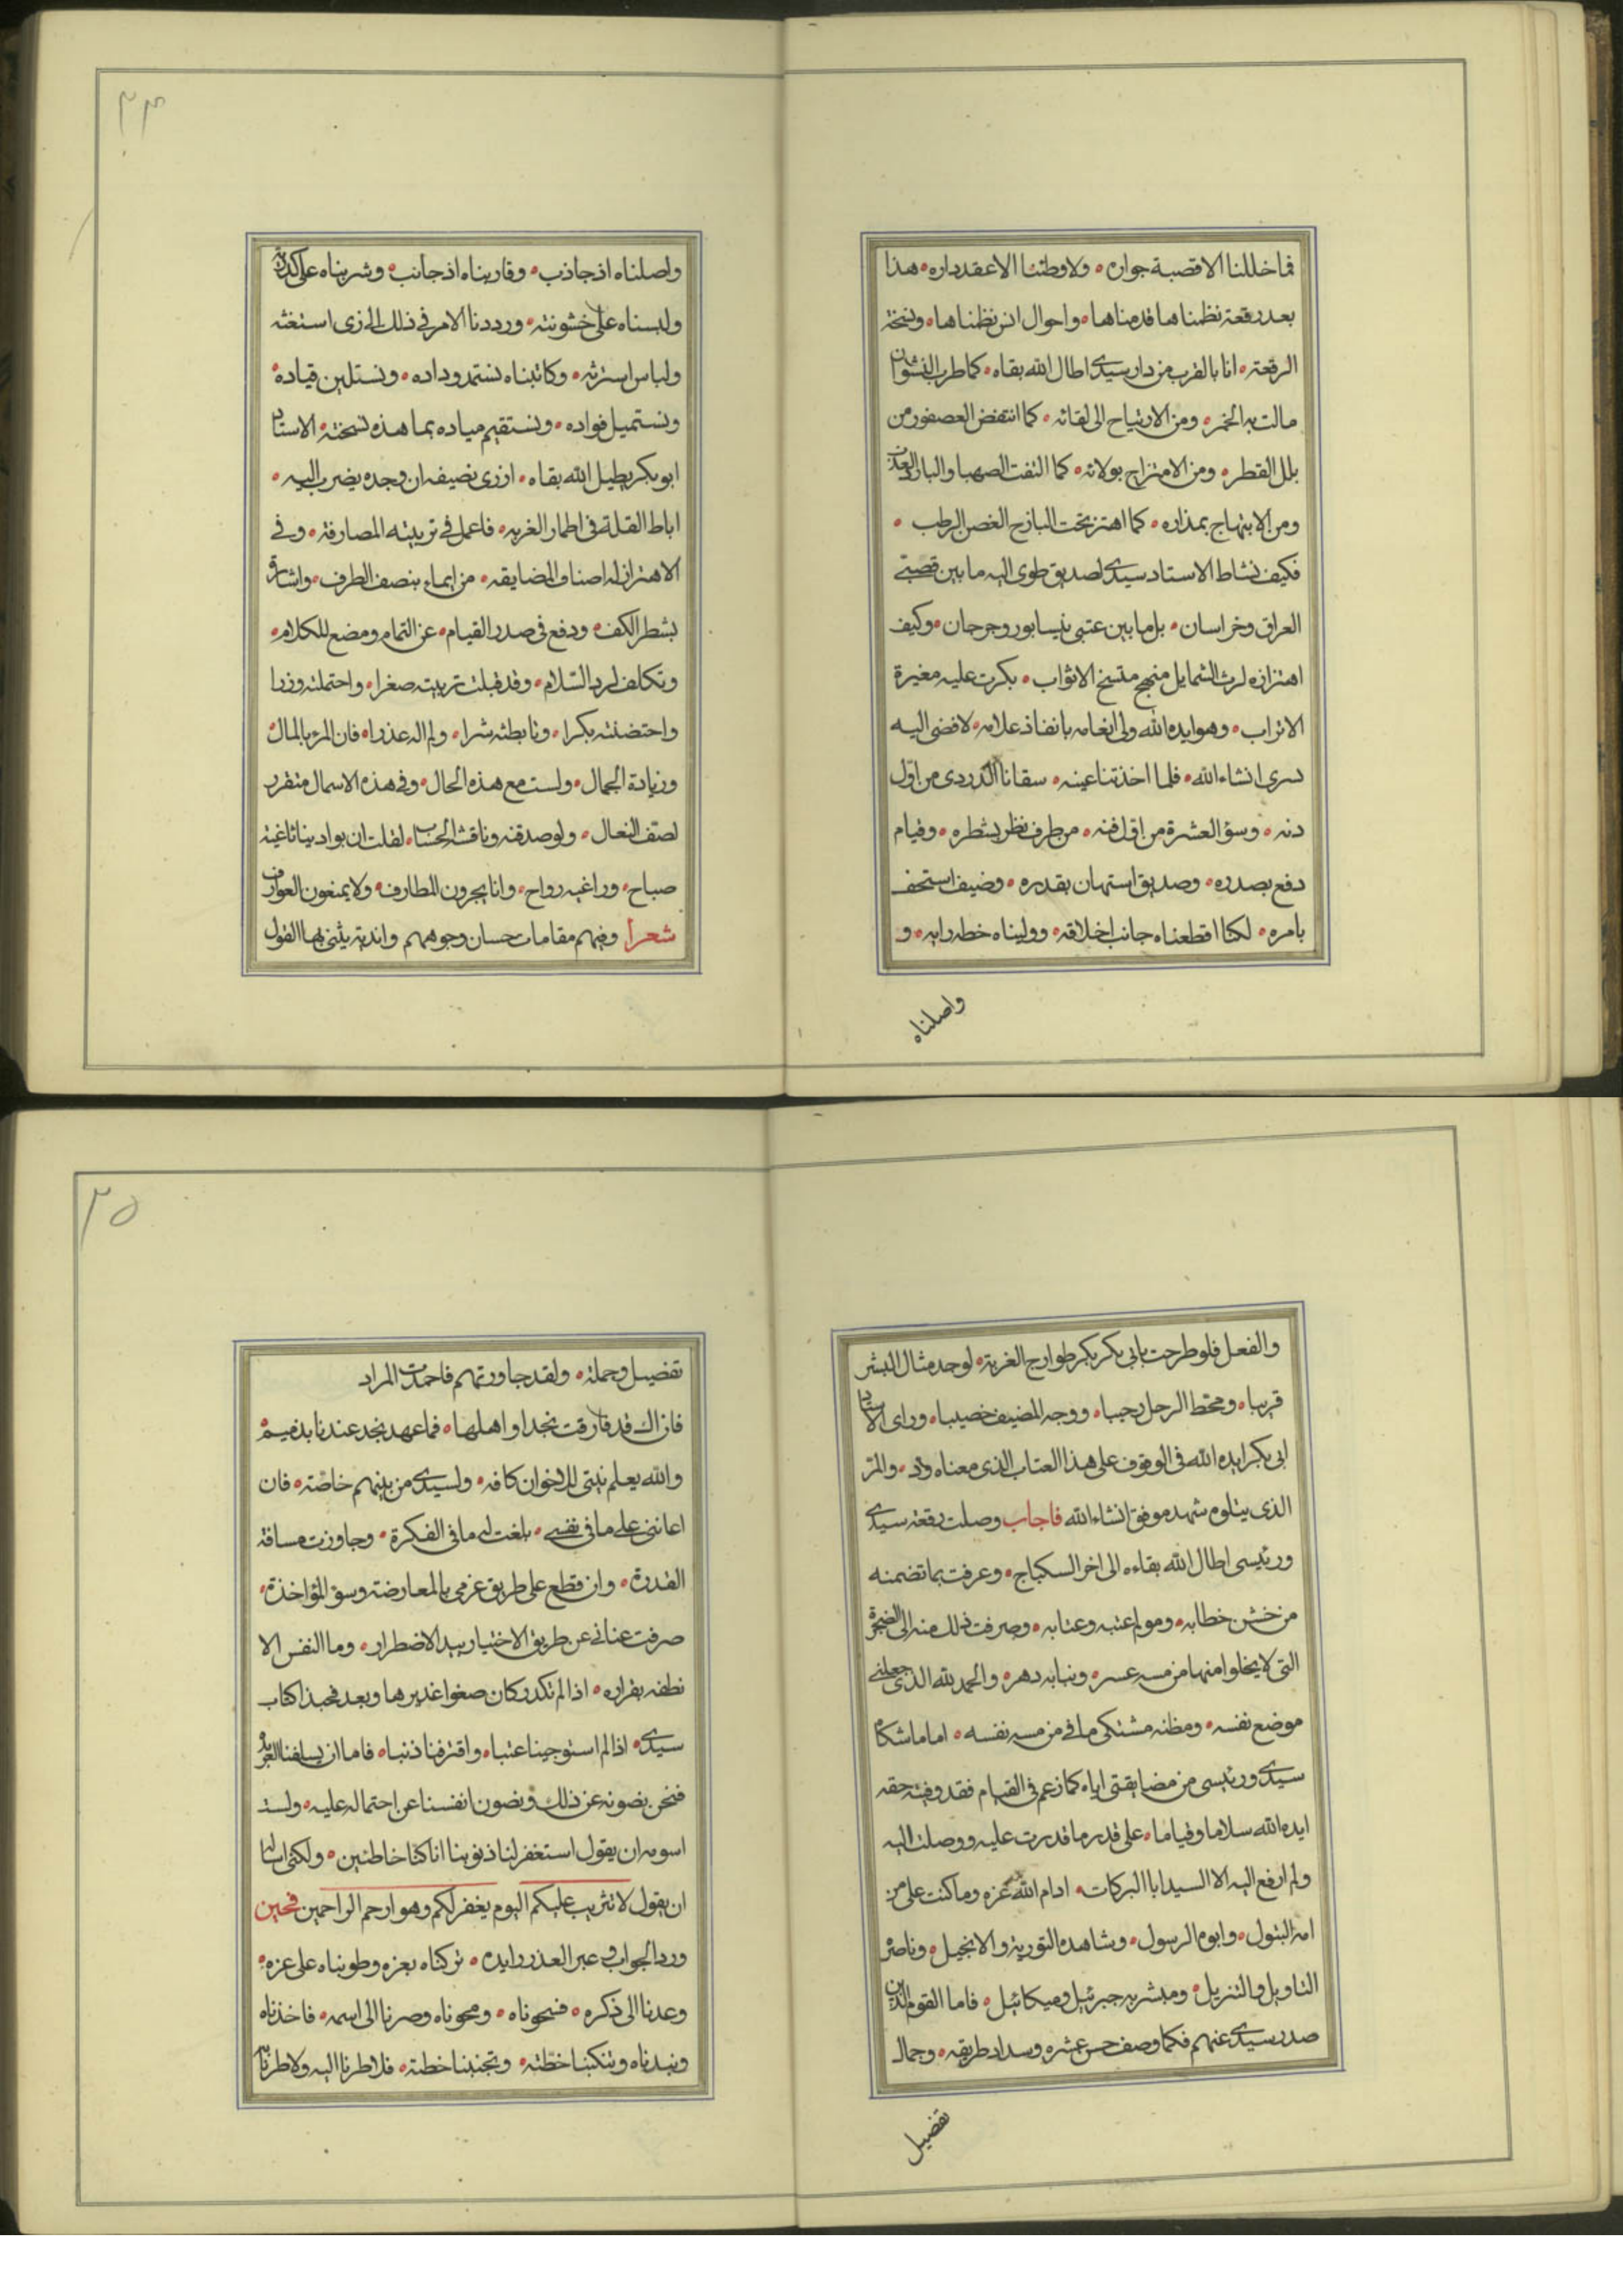 فما خللنا الا قصبة جواره ۰ ولا وطئنا الا عقد داره ۰ هذا
بعد رقعة نظمناها قدمناها ۰ واحوال انس نظمناها ۰ ونسخة
الرقعة ۰ انا بالقرب من دار سيدى اطال الله بقاه ۰ كما طرب النشوان
مالت به الخمر ۰ ومن الارتياح الى لقائه ۰ كما انتفض العصفور من
بلل القطر ۰ ومن الامتزاج بولائه ۰ كما التفت الصهبا والبارد العذب
ومن الابتهاج بمذاره ۰ كما اهتز تحت البارح الغصن الرطب ۰
فكيف نشاط الاستاد سيدى لصديق طوى اليه ما بين قصبتى
العراق وخراسان ۰ بل ما بين عتبى نيسابور وجرجان ۰ وكيف
اهتزازه لرث الشمايل منهج متسخ الاثواب ۰ بكرت عليه مغيرة
الاتراب ۰ وهو ايده الله ولى انعامه بانفاذ غلامه ۰ لافضى اليه
بسرى انشاء الله ۰ فلما اخذتنا عينه ۰ سقانا الدردى من اول
دنه ۰ وسؤ العشرة من اول فنه ۰ من طرف نظر بشطره ۰ وقيام
دفع بصدره ۰ وصديق استهان بقدره ۰ وضيف استخف
بامره ۰ لكنا اقطعناه جانب اخلاقه ۰ ووليناه خطه رايه ۰ و
واصلناه
٢٤
واصلناه اذ جاذب ۰ وقاربناه اذ جانب ۰ وشربناه على كدرته
ولبسناه على خشونته ۰ ورددنا الامر فى ذلك الى زى استغثه
ولباس استرثه ۰ وكاتبناه نستمد وداده ۰ ونستلين قياده ۰
ونستميل فواده ۰ ونستقيم مياده بما هذه نسخته ۰ الاستاد
ابو بكر يطيل الله بقاه ۰ ازرى بضيفه ان وجده يضرب اليه ۰
اباط القلة فى اطمار الغربه ۰ فاعمل فى تربيته المصارفة ۰ وفى
الاهتزاز له اصناف المضايقه ۰ من ايماء بنصف الطرف ۰ واشارة
بشطر الكف ۰ ودفع فى صدر القيام ۰ عن التمام ومضغ للكلام ۰
وتكلف لرد السلام ۰ وقد قبلت تربيته صغرا ۰ واحتملته وزرا
واحتضنته بكرا ۰ وتابطته شرا ۰ ولم اله عذرا ۰ فان المرء بالمال
وزيادة الجمال ۰ ولست مع هذه الحال ۰ وفى هذه الاسمال متقرر
لصتف النعال ۰ ولو صدقته وناقشه الحساب ۰ لقلت ان بوادينا ثاغية
صباح ۰ وراغبه رواح ۰ وانا يجرون المطارف ۰ ولا يمنعون العوارف
شعرا وفيهم مقامات حسان وجوههم واندية يثنى بها القول
والفعل فلو طرحت بابى بكر بكر طوارح الغربة ۰ لوجد مثال البشر
قريبا ۰ ومحط الرحل رحبا ۰ ووجه المضيف خصيبا ۰ وراى الاستاد
ابى بكر ايده الله فى الوقوف على هذا العتاب الذى معناه ود ۰ والمر
الذى يتلوه شهد موفق انشاء الله فاجاب وصلت رقعة سيدى
ورئيسى اطال الله بقاءه الى اخر السكباج ۰ وعرفت بما تضمنه
من خشن خطابه ۰ ومولم عتبه وعتابه ۰ وصرفت ذلك منه الى الضجرة
التى لا يخلوا منها من مسه عسره ۰ ونبا به دهره ۰ والحمد لله الذى جعلنى
موضع نفسه ۰ ومظنه مشتكى ما فى من مسه نفسه ۰ اما ما شكاه
سيدى ورئيسى من مضايقتى اياه كما زعم فى القيام فقد وفيته حقه
ايده الله سلاما وقياما ۰ على قدر ما قدرت عليه ووصلت اليه
ولم ارفع اليه الا السيد ابا البركات ۰ ادام الله عزه وما كنت على من
امه البتول ۰ وابوه الرسول ۰ وشاهده التورية والانجيل ۰ وناصره
التاويل والتنزيل ۰ ومبشر به جبرئيل وميكائيل ۰ فاما القوم الذين
صدر سيدى عنهم فكما وصف حسن عشره وسداد طريقه ۰ وجمال
تفضيل
٢٥
تفضيل وجملة ۰ ولقد جاورتهم فاحمدت المراد
فان اك قد فارقت نجدا واهلها ۰ فما عهد نجد عندنا بذميم ۰
والله يعلم نيتى للاخوان كافه ۰ ولسيدى من بينهم خاصة ۰ فان
اعاننى على ما فى نفسى ۰ بلغت له ما فى الفكرة ۰ وجاوزت مسافة
القدرة ۰ وان قطع على طريق عزمى بالمعارضة وسؤ المؤاخذة ۰
صرفت عنانى عن طريق الاختيار بيد الاضطرار ۰ وما النفس الا
نطفه بقراره ۰ اذا لم تكدر كان صفوا غديرها وبعد فحبذا كتاب
سيدى ۰ اذا لم استوجبنا عتبا ۰ واقترفنا ذنبا ۰ فاما ان يسلفنا العربده
فنحن نصونه عن ذلك ونصون انفسنا عن احتماله عليه ۰ ولست
اسومه ان يقول استغفر لنا ذنوبنا انا كنا خاطئين ۰ ولكنى اساله
ان يقول لا تثريب عليكم اليوم يغفر لكم وهو ارحم الراحمين فحين
ورد الجواب وعبر العذر رايده ۰ تركناه بعزه وطويناه على عزه ۰
وعدنا الى ذكره ۰ فنحوناه ۰ ومحوناه وصرنا الى اسمه ۰ فاخذناه
ونبذناه وتنكبنا خطته ۰ وتجنبنا خطته ۰ فلا طرنا اليه ولا طرنا به